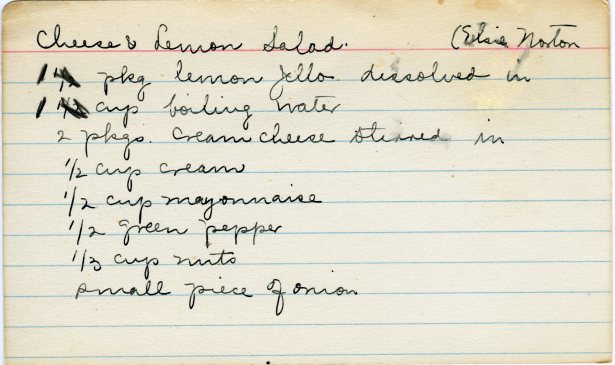 Cheese & Lemon Salad. (Elsie Norton
1 pkg lemon Jello dissolved in
1 cup boiling water
2 pkgs. cream cheese stirred in
1/2 cup cream
1/2 cup mayonnaise
1/2 green pepper
1/3 cup nuts
small piece of onion